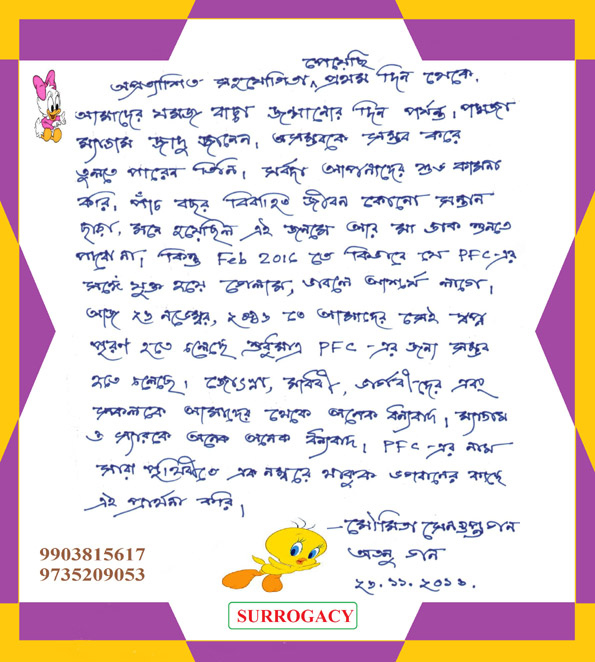 পেয়েছি
অপ্রত্যাশিত সহযোগিতা ^ প্রথম দিন থেকে,
আমাদের যমজ বাচ্চা জন্মানোর দিন পর্যন্ত।
ম্যাডাম জাদু জানেন, অসম্ভবকে সম্ভব করে
তুলতে পারেন তিনি। সর্বদা আপনাদের শুভ কামনা
করি, পাঁচ বছর বিবাহিত জীবন কোনো সন্তান
ছাড়া, মনে হয়েছিল এই জনমে আর মা ডাক শুনতে
পাবো না, কিন্তু Feb 2016 তে কিভাবে যে PFC-এর
সঙ্গে যুক্ত হয়ে গেলাম, ভাবলে আশ্চর্য লাগে।
আজ ২৬ নভেম্বর, ২০১৬ তে আমাদের সেই স্বপ্ন
পূরণ হতে চলেছে শুধুমাত্র PFC-এর জন্য সম্ভব
হতে চলেছে। এবং
সকলকে আমাদের থেকে অনেক ধন্যবাদ। ম্যাডাম
ও স্যারকে অনেক অনেক ধন্যবাদ। PFC-এর নাম
সারা পৃথিবীতে এক নম্বরে থাকুক ভগবানের কাছে
এই প্রার্থনা করি।
—মৌমিতা সেনগুপ্ত পান
অতনু পান
9903815617
9735209053
SURROGACY